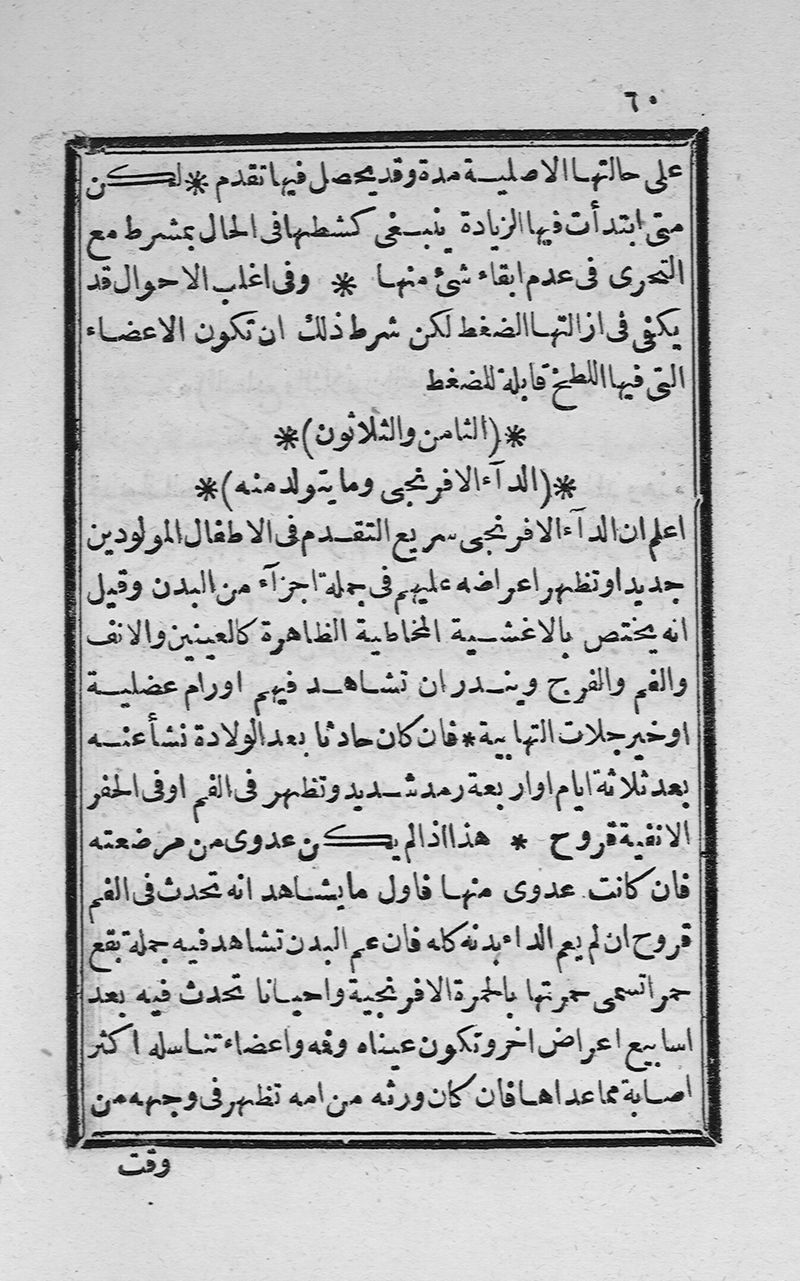 ٦٠
على حالتها الاصلية مدة وقد يحصل فيها تقدم * لكن
متى ابتدأت فيها الزيادة ينبغى كشطها فى الحال بمشرط مع
التحرى فى عدم ابقاء شئ منها * وفى اغلب الاحوال قد
يكفى فى ازالتها الضغط لكن شرط ذلك ان تكون الاعضاء
التى فيها اللطخ قابلة للضغط
*(الثامن والثلاثون)*
*(الدآء الافرنجى وما يتولد منه)*
اعلم ان الدآء الافرنجى سريع التقدم فى الاطفال المولودين
جديدا وتظهر اعراضه عليهم فى جملة اجزآء من البدن وقيل
انه يختص بالاغشية المخاطية الظاهرة كالعينين والانف
والفم والفرج ويندر ان تشاهد فيهم اورام عضلية
او خيرجلات التهابية * فان كان حادثا بعد الولادة نشأ عنه
بعد ثلاثة ايام او اربعة رمد شديد وتظهر فى الفم او فى الحفر
الانفية قروح * هذا اذا لم يكن عدوى من مرضعته
فان كانت عدوى منها فاول ما يشاهد انه تحدث فى الفم
قروح ان لم يعم الداء بدنه كله فان عم البدن تشاهد فيه جملة بقع
حمر اتسمى حمرتها بالحمرة الافرنجية واحيانا تحدث فيه بعد
اسابيع اعراض اخر وتكون عيناه وفمه واعضاء تناسله اكثر
اصابة مما عداها فان كان ورثه من امه تظهر فى وجهه من
وقت